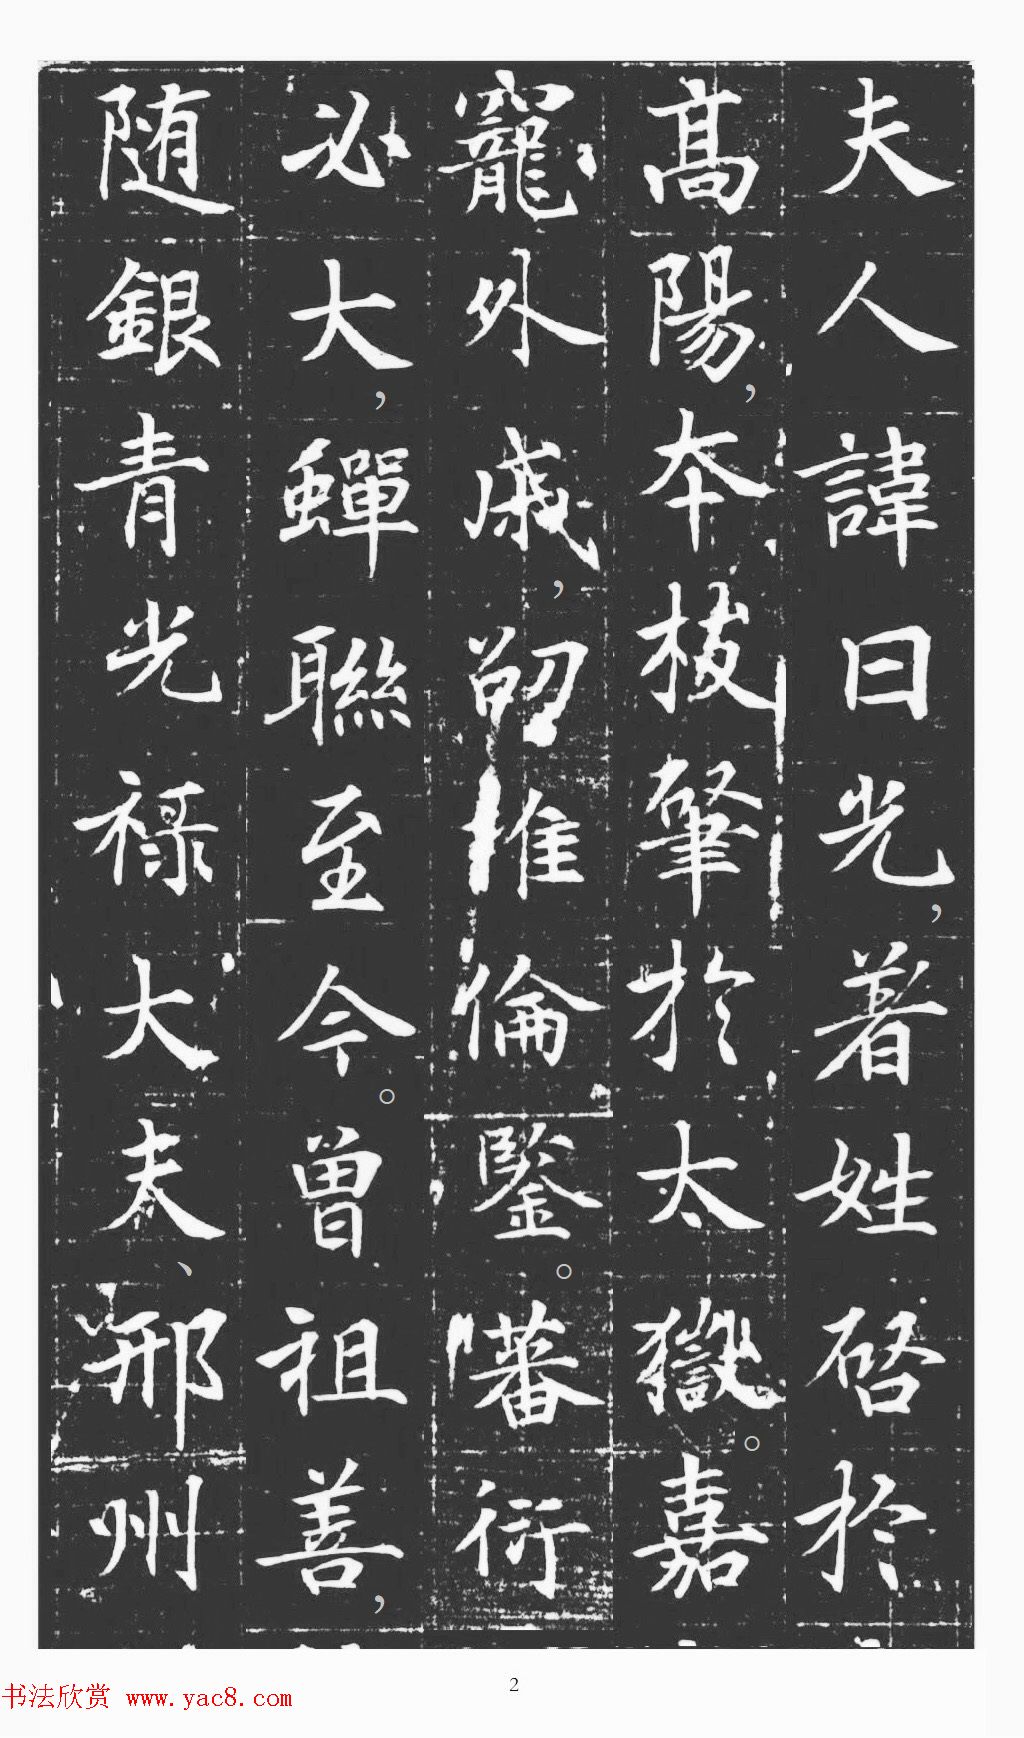 夫人諱曰光，著姓啓於
高陽，本枝肇於太嶽。嘉
寵外戚，詔惟倫鑒。蕃衍
必大，蟬聯至今。曾祖善，
随銀青光祿大夫、邢州
2
书法欣赏 www.yac8.com